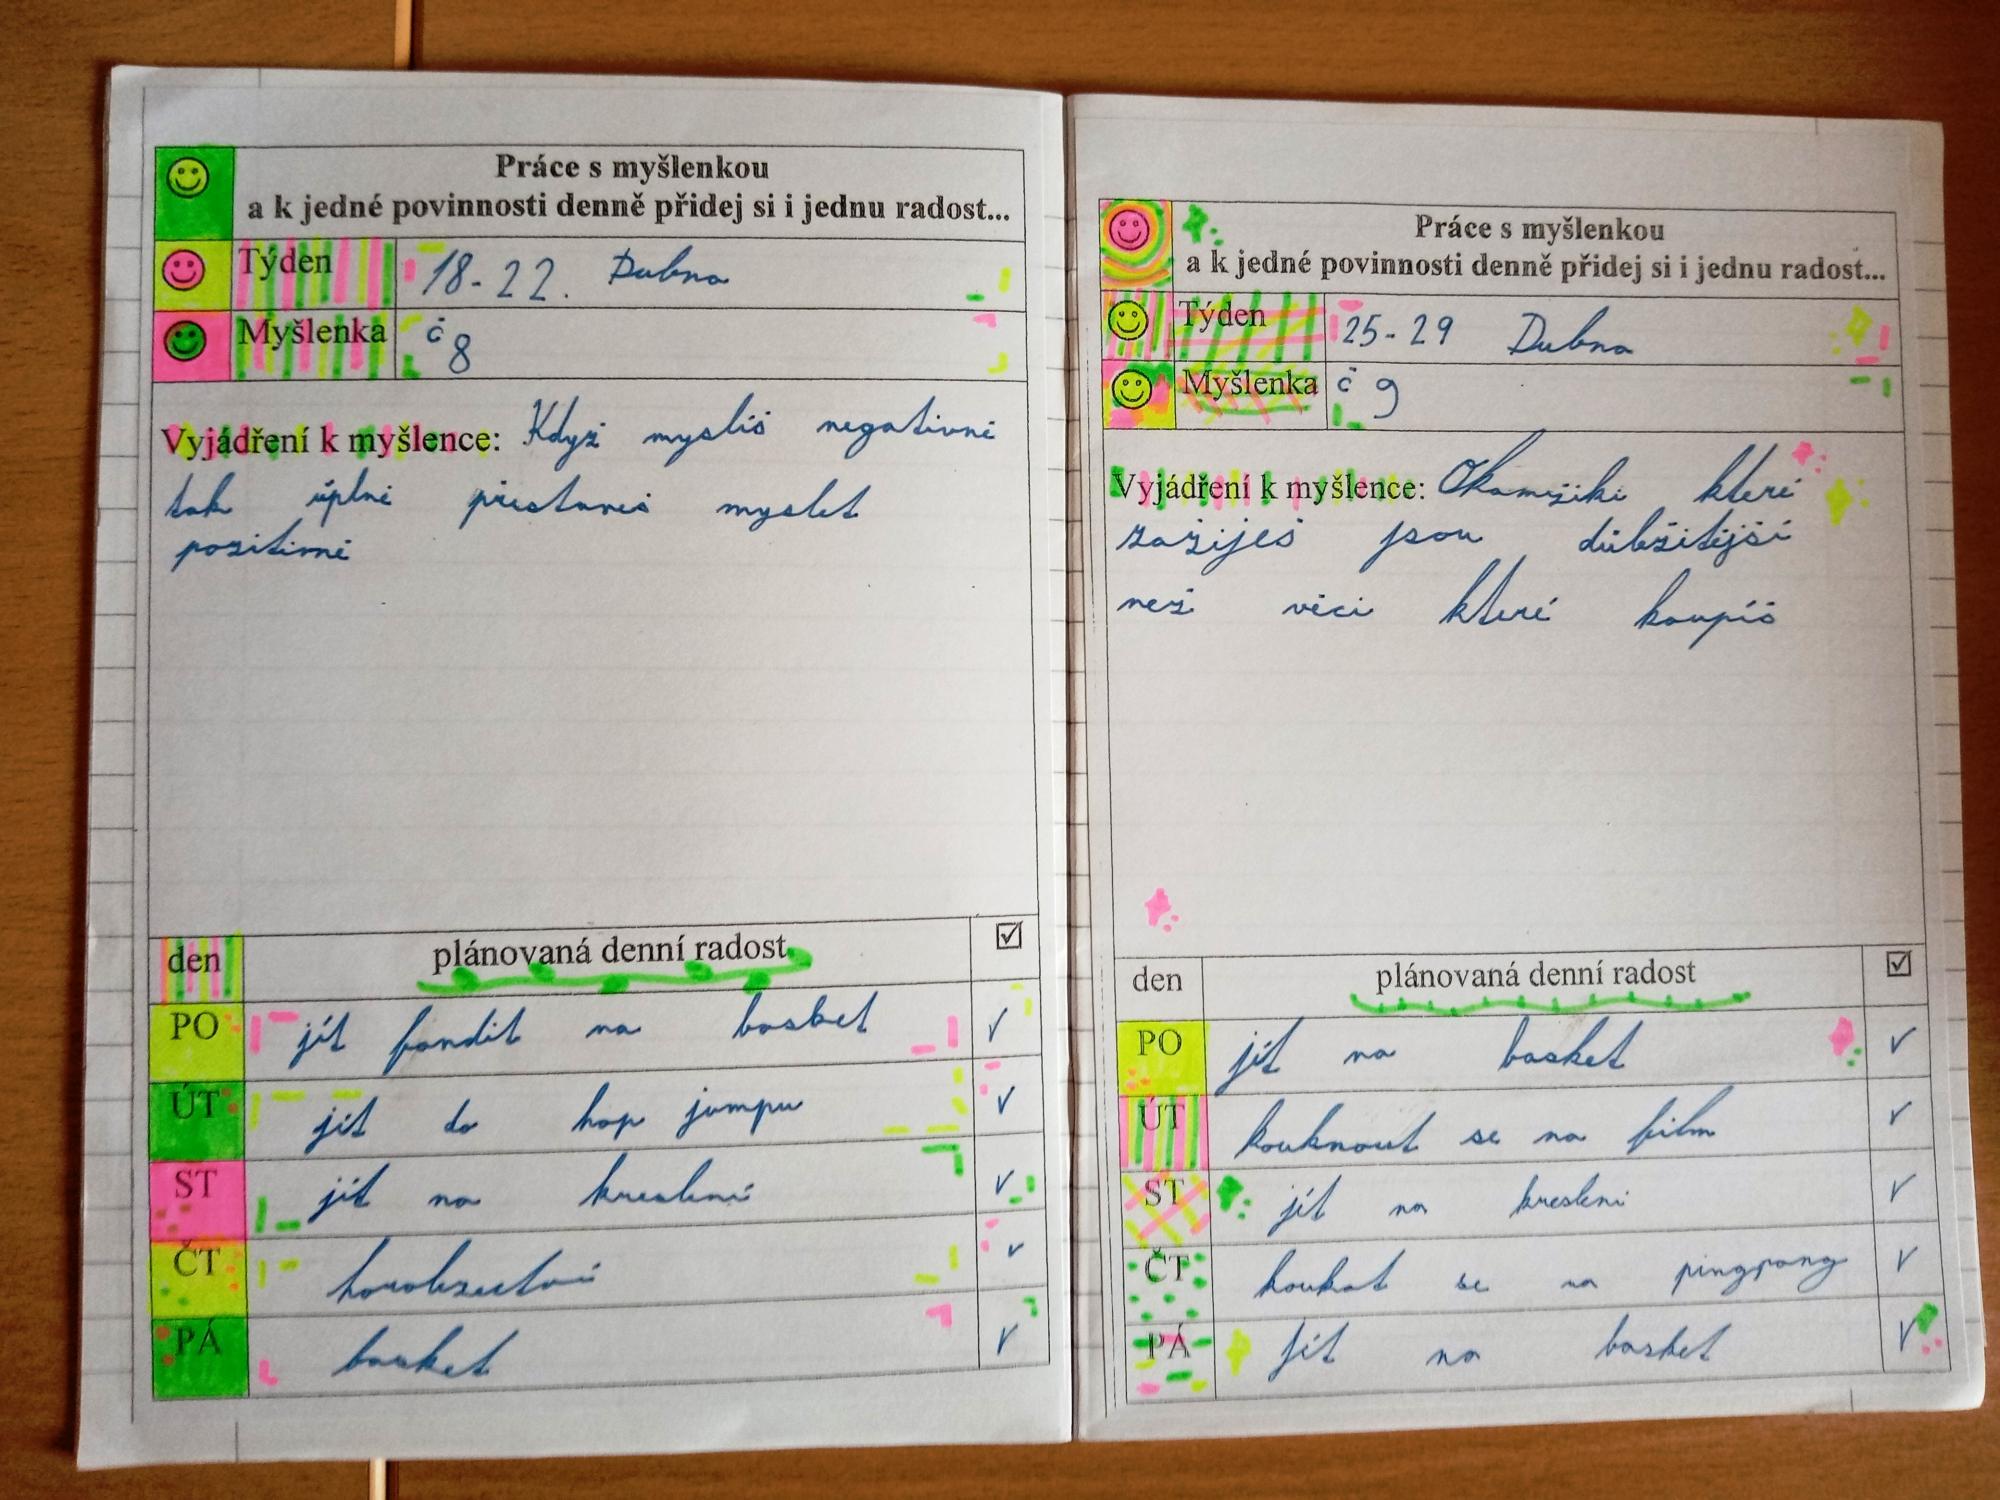 Práce s myšlenkou
a k jedné povinnosti denně přidej si i jednu radost...
Týden 18-22. Dubna
Myšlenka č 8
Vyjádření k myšlence: Když myslíš negativně
tak úplně přestaneš myslet
pozitivně
den plánovaná denní radost
PO jít fandit na basket
ÚT jít do hop jumpu
ST jít na kreslení
ČT horolezectví
PÁ basket
Práce s myšlenkou
a k jedné povinnosti denně přidej si i jednu radost...
Týden 25-29 Dubna
Myšlenka č 9
Vyjádření k myšlence: Okamžiki které
zažiješ jsou důležitější
než věci které koupíš
den plánovaná denní radost
PO jít na basket
ÚT kouknout se na film
ST jít na kreslení
ČT koukat se na pingpong
PÁ jít na basket